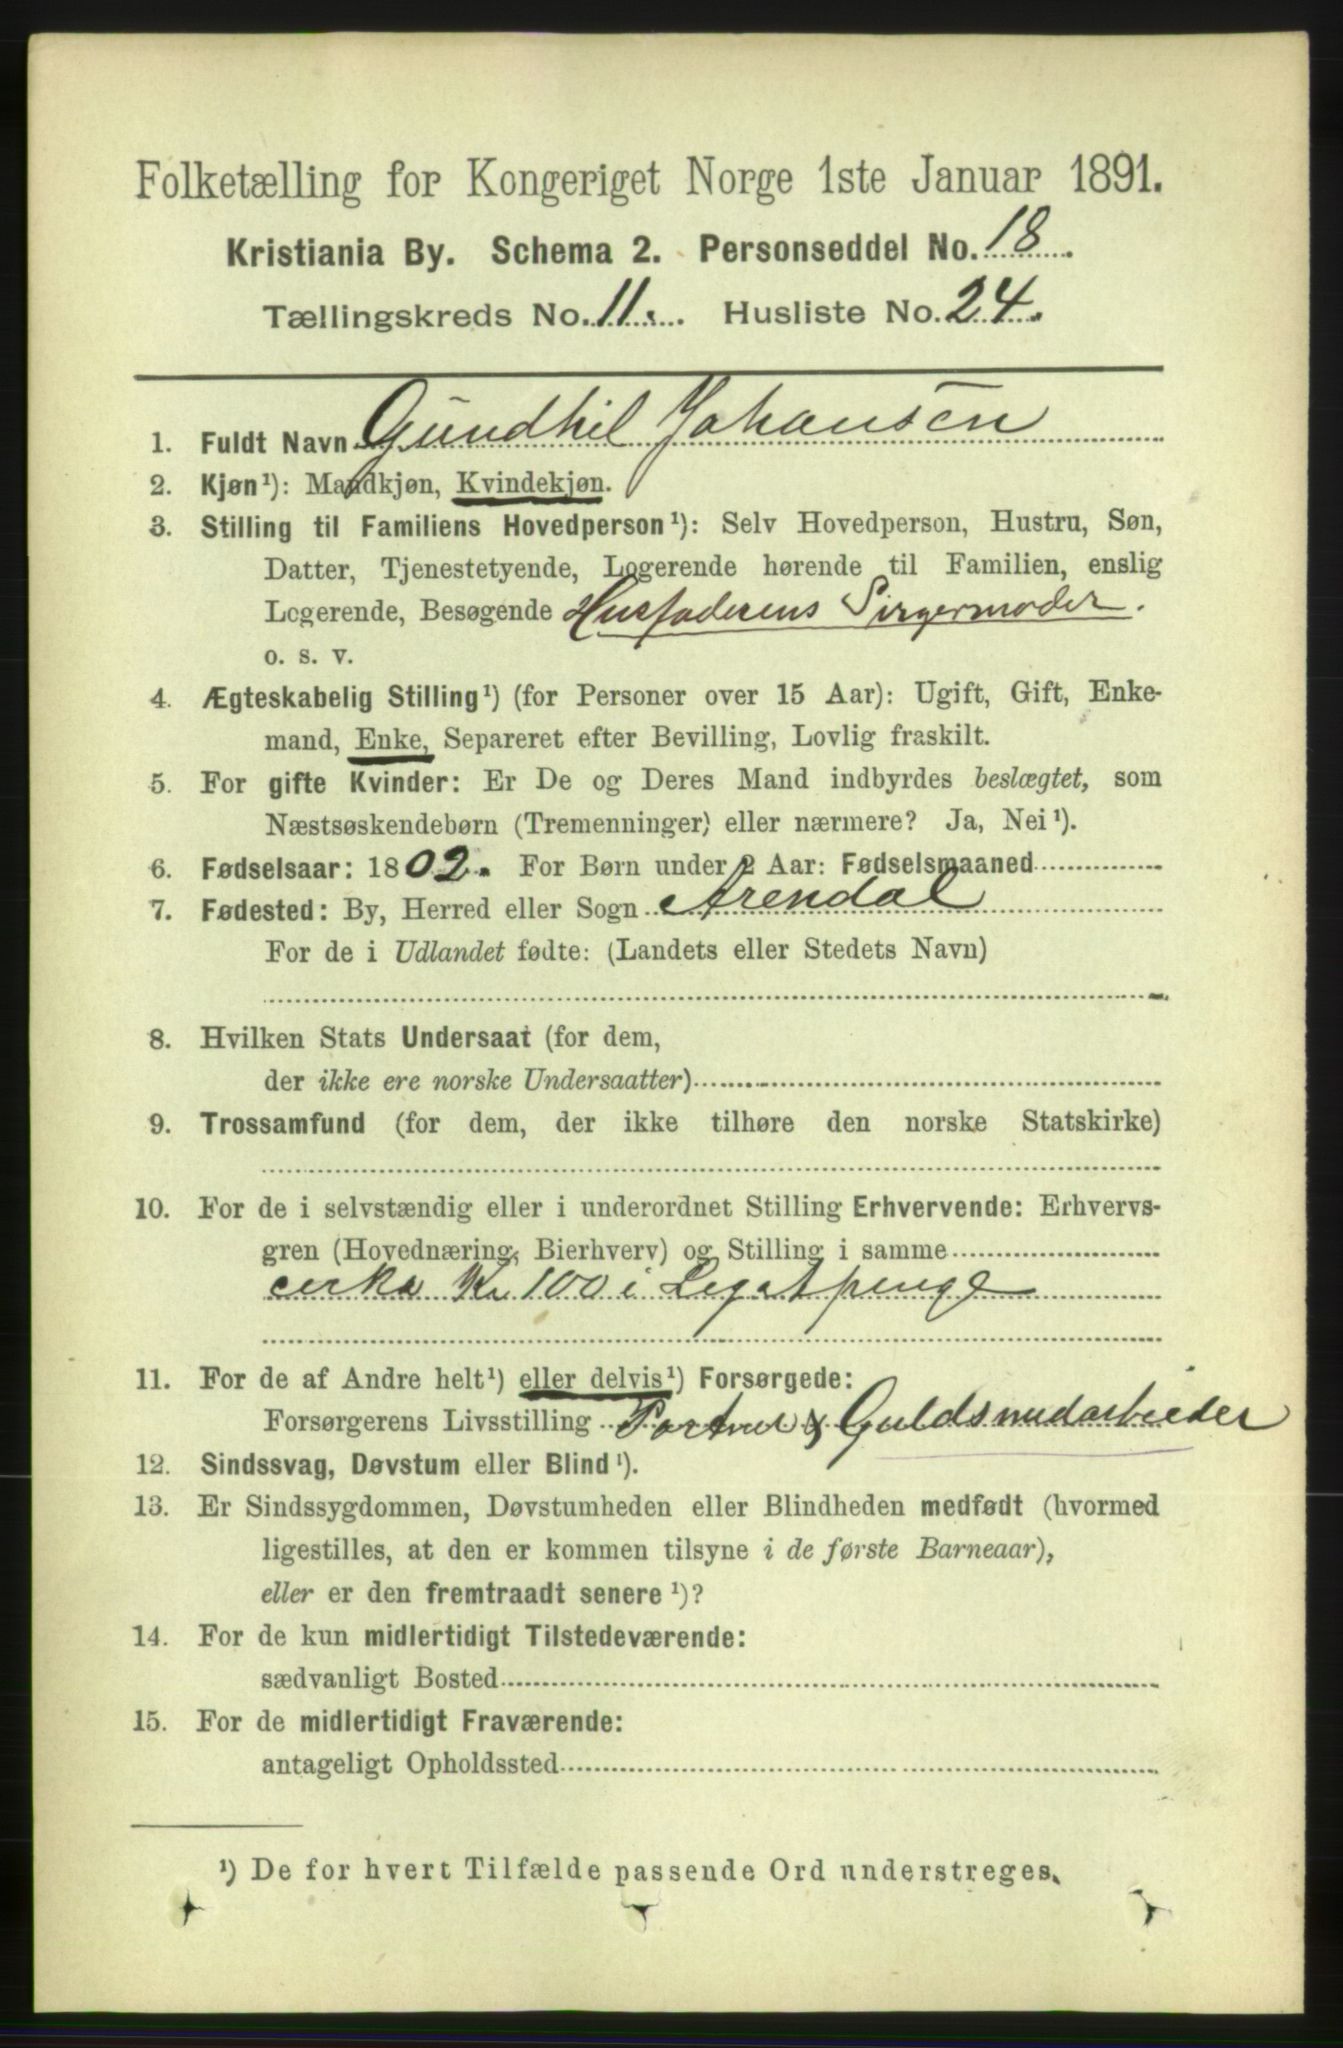 Folketælling for Kongeriget Norge 1ste Januar 1891.
Kristiania By. Schema 2. Personseddel No. 18
Tællingskreds No. 11. Husliste No. 24.
1. Fuldt Navn Gundhil Johansen
2. Kjøn¹): Mandkjøn, Kvindekjøn.
3. Stilling til Familiens Hovedperson¹): Selv Hovedperson, Hustru, Søn,
Datter, Tjenestetyende, Logerende hørende til Familien, enslig
Logerende, Besøgende Husfaderens Svigermoder.
o. s. v.
4. Ægteskabelig Stilling¹) (for Personer over 15 Aar): Ugift, Gift, Enke-
mand, Enke, Separeret efter Bevilling, Lovlig fraskilt.
5. For gifte Kvinder: Er De og Deres Mand indbyrdes beslægtet, som
Næstsøskendebørn (Tremenninger) eller nærmere? Ja, Nei¹).
6. Fødselsaar: 1802. For Børn under 2 Aar: Fødselsmaaned
7. Fødested: By, Herred eller Sogn Arendal
For de i Udlandet fødte: (Landets eller Stedets Navn)
8. Hvilken Stats Undersaat (for dem,
der ikke ere norske Undersaatter)
9. Trossamfund (for dem, der ikke tilhøre den norske Statskirke)
10. For de i selvstændig eller i underordnet Stilling Erhvervende: Erhvervs-
gren (Hovednæring, Bierhverv) og Stilling i samme
cirka Kr 100 i Legatpenge
11. For de af Andre helt¹) eller delvis¹) Forsørgede:
Forsørgerens Livsstilling Portner & Guldsmedarbeider
12. Sindssvag, Døvstum eller Blind¹).
13. Er Sindssygdommen, Døvstumheden eller Blindheden medfødt (hvormed
ligestilles, at den er kommen tilsyne i de første Barneaar),
eller er den fremtraadt senere¹)?
14. For de kun midlertidigt Tilstedeværende:
sædvanligt Bosted
15. For de midlertidigt Fraværende:
antageligt Opholdssted
¹) De for hvert Tilfælde passende Ord understreges.